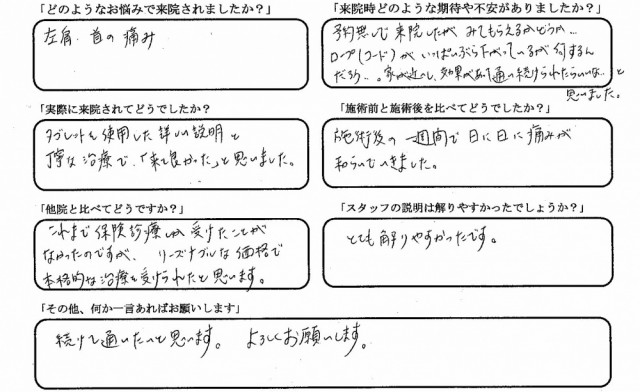 「どのようなお悩みで来院されましたか？」
左肩、首の痛み
「来院時どのような期待や不安がありましたか？」
予約無しで来院したが みてもらえるかどうか…
ロープ(コード)がいっぱいぶら下がっているが何するん
だろう…。家が近いし、効果があって通い続けられたらいいな…と
思いました。
「実際に来院されてどうでしたか？」
タブレットも使用した詳しい説明と
丁寧な治療で、「来て良かった」と思いました。
「施術前と施術後を比べてどうでしたか？」
施術後の一週間で日に日に痛みが
和らいでいきました。
「他院と比べてどうですか？」
これまで保険診療しか受けたことが
なかったのですが、リーズナブルな価格で
本格的な治療を受けられたと思います。
「スタッフの説明は解りやすかったでしょうか？」
とても解りやすかったです。
「その他、何か一言あればお願いします」
続けて通いたいと思います。 よろしくお願いします。